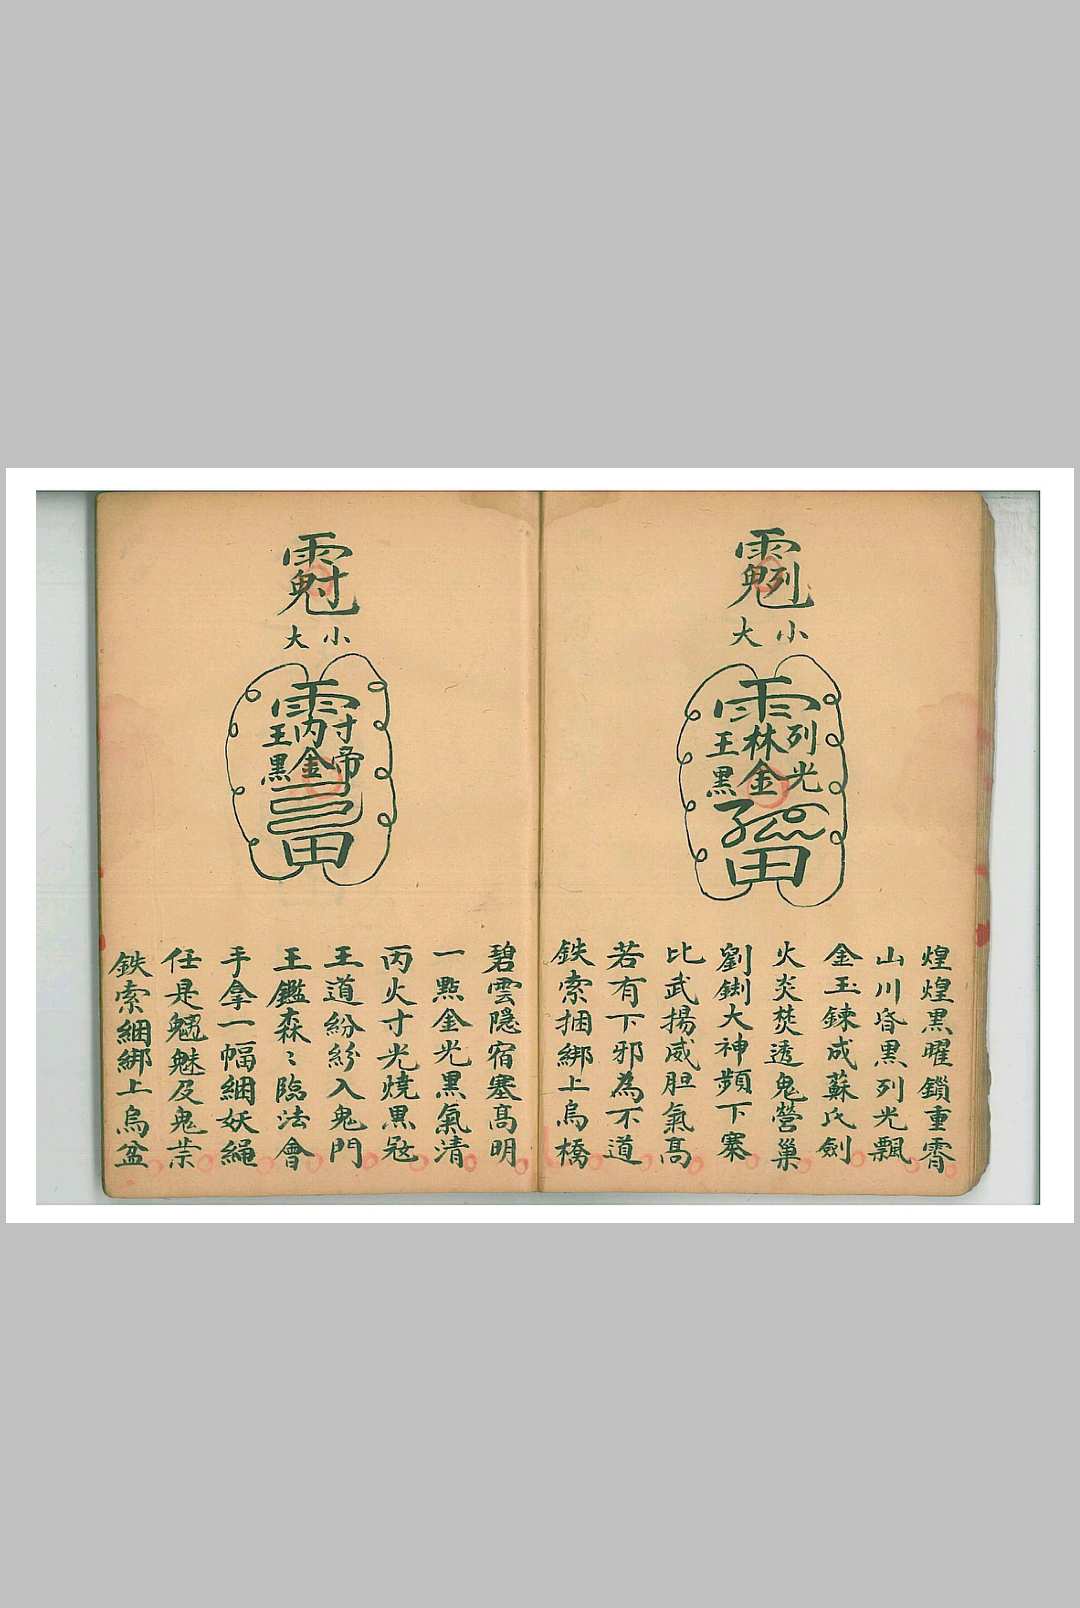 小大
列林王
光金黑
煌煌黑曜鎖重霄
山川昏黑列光飄
金玉鍊成蘇氏劍
火炎焚透鬼營巢
劉鍘大神頻下寨
比武揚威胆氣高
若有下邪為不道
鉄索捆綁上烏橋
小大
寸丙王
帝金黑
碧雲隱宿塞高明
一點金光黑氣清
丙火寸光燒黑冦
王道紛紛入鬼門
王鑑森〻臨法會
手拿一幅綑妖繩
任是魑魅及鬼祟
鉄索綑綁上烏盆